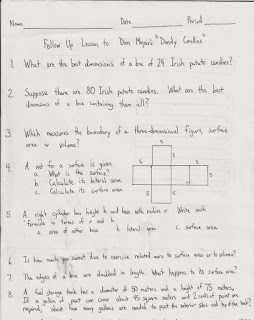 Name Date Period
Follow Up Lesson to Dan Meyer's "Dandy Candies"
1. What are the best dimensions of a box of 24 Irish potato candies?
2. Suppose there are 80 Irish potato candies. What are the best
dimensions of a box containing them all?
3. Which measures the boundary of a three-dimensional figure, surface
area or volume?
4. A net for a surface is given.
a. What is the surface?
b. Calculate its lateral area.
c. Calculate its surface area.
5
5
5
5
5. A right cylinder has height h and base with radius r. Write each
formula in terms of r and h.
a. area of either base b. lateral area c. surface area
6. Is how much you sweat due to exercise related more to surface area or to volume?
7. The edges of a box are doubled in length. What happens to its surface area?
8. A fuel storage tank has a diameter of 50 meters and a height of 75 meters.
If a gallon of paint can cover about 45 square meters and 2 coats of paint are
required, about how many gallons are needed to paint the exterior sides and top of the tank?